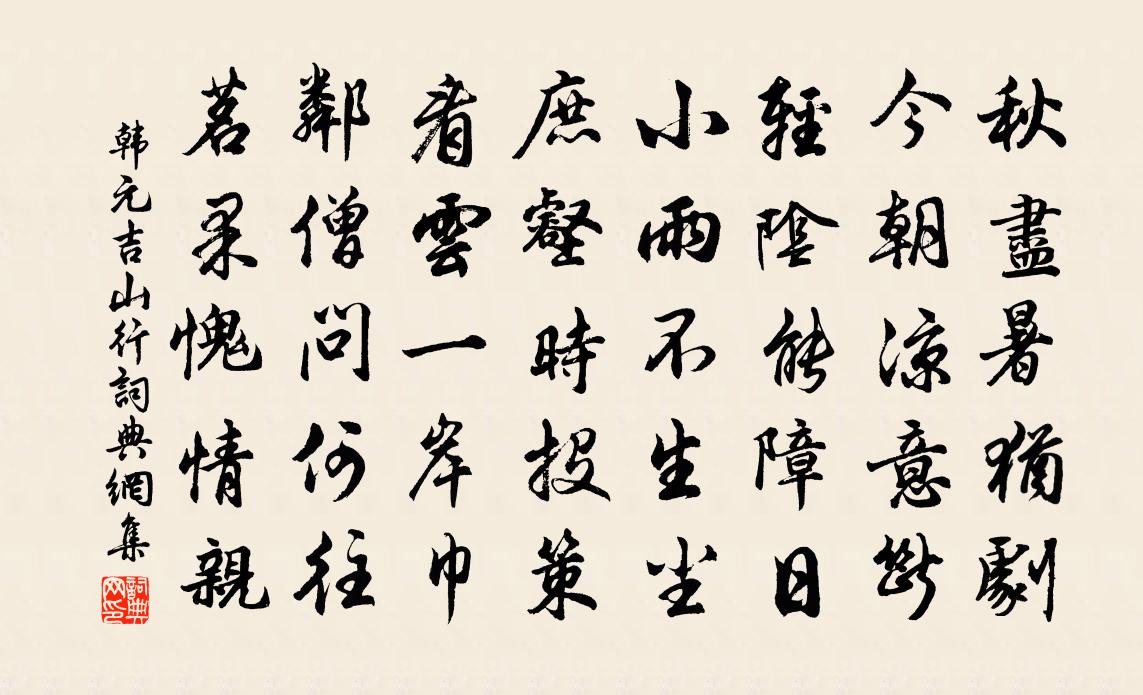 秋盡暑猶劇
今朝涼意新
輕陰能障日
小雨不生尘
庶壑時投策
看雲一岸巾
鄰僧問何往
茗果愧情親
韩元吉山行詞典網集
詞典网印